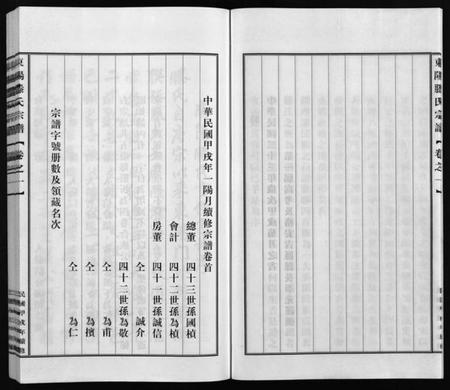 東陽滕氏宗譜【卷之一】
中華民國甲戌年一陽月續修宗譜卷首
總董 四十三世孫國楨
會計 四十二世孫為楨
房董 四十一世孫誠信
仝 誠介
四十二世孫為敬
仝 為甫
仝 為擯
仝 為仁
宗譜字號册數及領藏名次
東陽滕氏宗譜【卷之一】
民國甲戌年續修